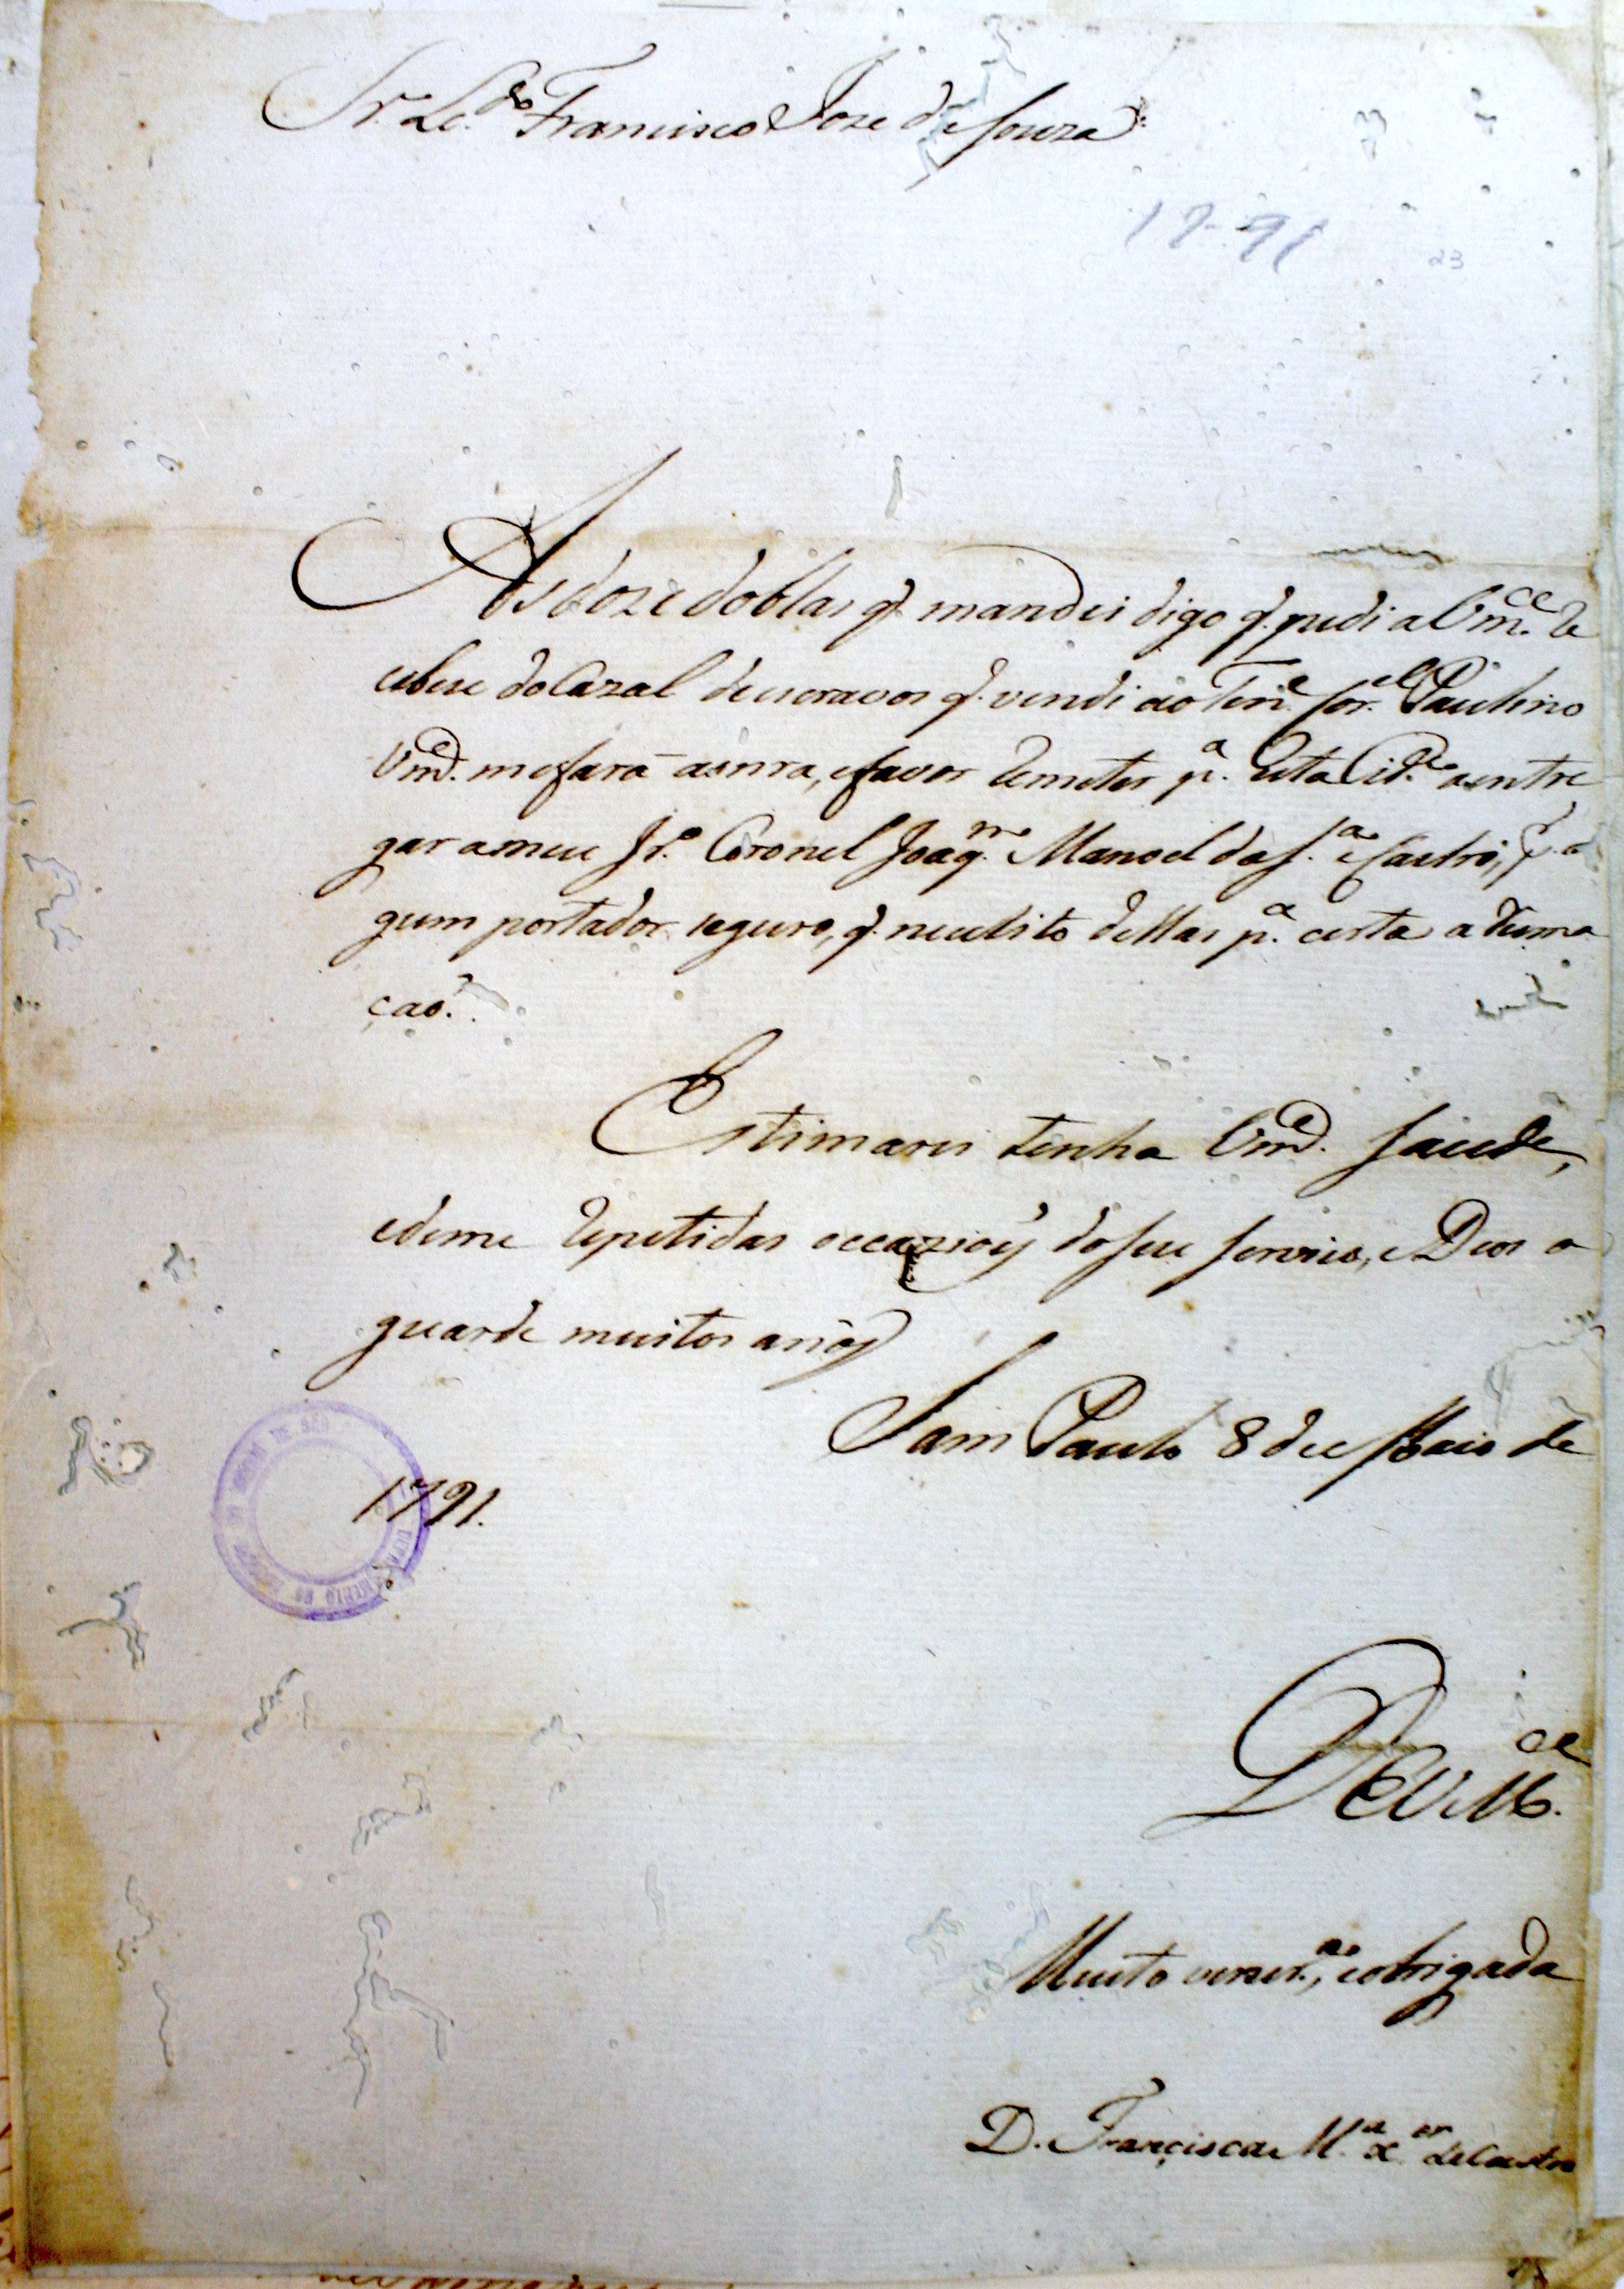 Sr. Lc.do Francisco Jose de Souza
1791
23
As doze doblas q. mandei digo q. pedi a Vm.ce Re
cebese do Cazal de escravos q. vendi ao Ten.e Cor.el Paulino
Vm.d. me fará a onra, e favor Remeter p.a esta Cid.e a entre
gar a meu Ir.o Coronel Joaq.m Manoel da S.a e Castro, p.r al
gum portador seguro, q. necesito dellas p.a certa a Ruma
çaõ.
Estimarei tenha Vm.d. saude,
e deme Repetidas occazioẽs do seu servicio, e Deos o
guarde muitos anõs
Sam Paulo 8 de Maio de
1791.
De V. M.ce
Muito vener.a, e obrigada
D. Francisca M.a X.er de Castro